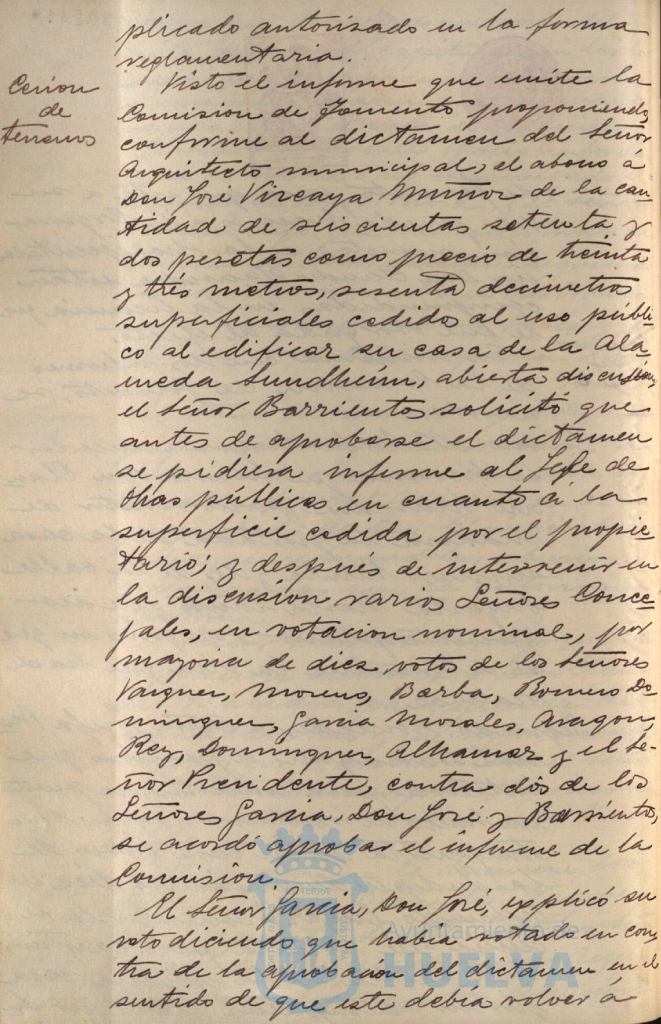 plicado autorizado en la forma
reglamentaria.
Cesion
de
terrenos
Visto el informe que emite la
Comision de Fomento proponiendo,
conforme al dictamen del Señor
Arquitecto municipal, el abono á
Don José Vizcaya Muñoz de la can-
tidad de seiscientas setenta y
dos pesetas como precio de treinta
y tres metros, sesenta decimetros
superficiales cedidos al uso públi-
co al edificar su casa de la Ala-
meda Sundheim, abierta discusión,
el Señor Barrientos solicitó que
antes de aprobarse el dictamen
se pidiera informe al Jefe de
Obras públicas en cuanto á la
superficie cedida por el propie-
tario; y después de intervenir en
la discusion varios Señores Conce-
jales, en votacion nominal, por
mayoria de diez votos de los Señores
Vazquez, Moreno, Barba, Romero Do-
minguez, Garcia Morales, Aragon,
Rey, Dominguez, Alhamar y el Se-
ñor Presidente, contra dós de los
Señores Garcia, Don José y Barrientos,
se acordó aprobar el informe de la
Comision.
El Señor Garcia, Don José, explicó su
voto diciendo que habia votado en con-
tra de la aprobacion del dictamen en el
sentido de que este debia volver á
Ayuntamiento de
HUELVA